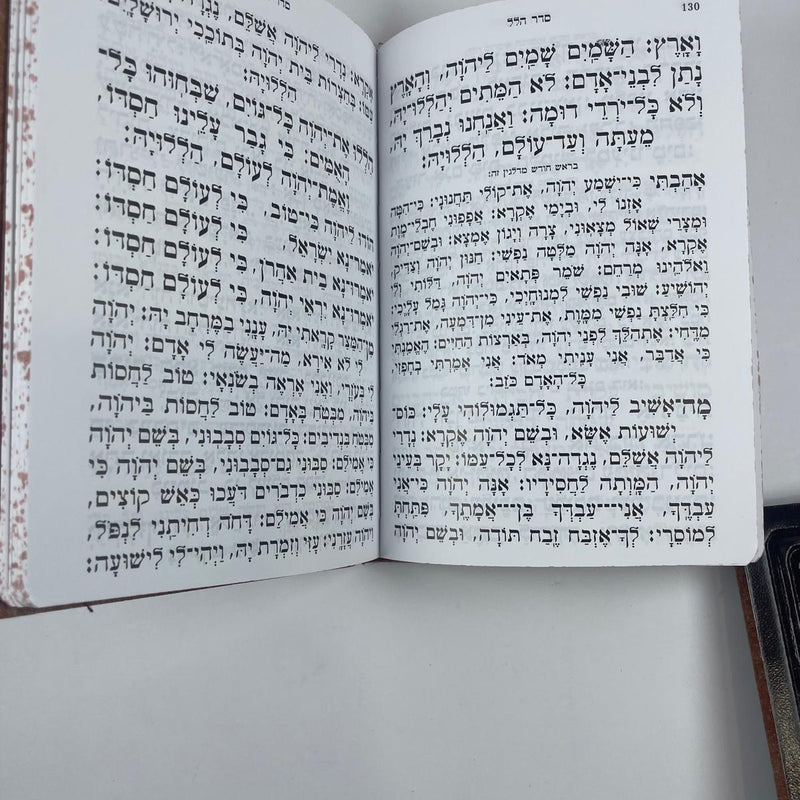 130
סדר הלל
וָאָרֶץ: הַשָּׁמַיִם שָׁמַיִם לַיהֹוָה, וְהָאָרֶץ
נָתַן לִבְנֵי־אָדָם: לֹא הַמֵּתִים יְהַלְלוּ־יָהּ,
וְלֹא כָּל־יֹרְדֵי דוּמָה: וַאֲנַחְנוּ נְבָרֵךְ יָהּ,
מֵעַתָּה וְעַד־עוֹלָם, הַלְלוּיָהּ:
בראש חודש מדלגין זה:
אָהַבְתִּי כִּי־יִשְׁמַע יְהֹוָה, אֶת־קוֹלִי תַּחֲנוּנָי: כִּי־הִטָּה
אָזְנוֹ לִי, וּבְיָמַי אֶקְרָא: אֲפָפוּנִי חֶבְלֵי־מָוֶת
וּמְצָרֵי שְׁאוֹל מְצָאוּנִי, צָרָה וְיָגוֹן אֶמְצָא: וּבְשֵׁם־יְהֹוָה
אֶקְרָא, אָנָּה יְהֹוָה מַלְּטָה נַפְשִׁי: חַנּוּן יְהֹוָה וְצַדִּיק,
וֵאלֹהֵינוּ מְרַחֵם: שֹׁמֵר פְּתָאיִם יְהֹוָה, דַּלּוֹתִי וְלִי
יְהוֹשִׁיעַ: שׁוּבִי נַפְשִׁי לִמְנוּחָיְכִי, כִּי־יְהֹוָה גָּמַל עָלָיְכִי:
כִּי חִלַּצְתָּ נַפְשִׁי מִמָּוֶת, אֶת־עֵינִי מִן־דִּמְעָה, אֶת־רַגְלִי
מִדֶּחִי: אֶתְהַלֵּךְ לִפְנֵי יְהֹוָה, בְּאַרְצוֹת הַחַיִּים: הֶאֱמַנְתִּי
כִּי אֲדַבֵּר, אֲנִי עָנִיתִי מְאֹד: אֲנִי אָמַרְתִּי בְחָפְזִי,
כָּל־הָאָדָם כֹּזֵב:
מָה־אָשִׁיב לַיהֹוָה, כָּל־תַּגְמוּלוֹהִי עָלָי: כּוֹס־
יְשׁוּעוֹת אֶשָּׂא, וּבְשֵׁם יְהֹוָה אֶקְרָא: נְדָרַי
לַיהֹוָה אֲשַׁלֵּם, נֶגְדָה־נָּא לְכָל־עַמּוֹ: יָקָר בְּעֵינֵי
יְהֹוָה, הַמָּוְתָה לַחֲסִידָיו: אָנָּה יְהֹוָה כִּי־אֲנִי
עַבְדֶּךָ, אֲנִי־־־עַבְדְּךָ בֶּן־־אֲמָתֶךָ, פִּתַּחְתָּ
לְמוֹסֵרָי: לְךָ־אֶזְבַּח זֶבַח תּוֹדָה, וּבְשֵׁם יְהֹוָה
אֶקְרָא: נְדָרַי לַיהֹוָה אֲשַׁלֵּם,
עַמּוֹ: בְּחַצְרוֹת בֵּית יְהֹוָה בְּתוֹכֵכִי יְרוּשָׁלָיִם
הַלְלוּיָהּ:
הַלְלוּ אֶת־יְהֹוָה כָּל־גּוֹיִם, שַׁבְּחוּהוּ כָּל־
הָאֻמִּים: כִּי גָבַר עָלֵינוּ חַסְדּוֹ,
וֶאֱמֶת־יְהֹוָה לְעוֹלָם, הַלְלוּיָהּ:
הוֹדוּ לַיהֹוָה כִּי־טוֹב, כִּי לְעוֹלָם חַסְדּוֹ:
יֹאמַר־נָא יִשְׂרָאֵל, כִּי לְעוֹלָם חַסְדּוֹ:
יֹאמְרוּ־נָא בֵית אַהֲרֹן, כִּי לְעוֹלָם חַסְדּוֹ:
יֹאמְרוּ־נָא יִרְאֵי יְהֹוָה, כִּי לְעוֹלָם חַסְדּוֹ:
מִן־הַמֵּצַר קָרָאתִי יָּהּ, עָנָנִי בַמֶּרְחָב יָהּ: יְהֹוָה
לִי לֹא אִירָא, מַה־יַּעֲשֶׂה לִי אָדָם: יְהֹוָה
לִי בְּעֹזְרָי, וַאֲנִי אֶרְאֶה בְשֹׂנְאָי: טוֹב לַחֲסוֹת
בַּיהֹוָה, מִבְּטֹחַ בָּאָדָם: טוֹב לַחֲסוֹת בַּיהֹוָה,
מִבְּטֹחַ בִּנְדִיבִים: כָּל־גּוֹיִם סְבָבוּנִי, בְּשֵׁם יְהֹוָה
כִּי אֲמִילַם: סַבּוּנִי גַם־סְבָבוּנִי, בְּשֵׁם יְהֹוָה כִּי
אֲמִילַם: סַבּוּנִי כִדְבֹרִים דֹּעֲכוּ כְּאֵשׁ קוֹצִים,
בְּשֵׁם יְהֹוָה כִּי אֲמִילַם: דָּחֹה דְחִיתַנִי לִנְפֹּל,
וַיהֹוָה עֲזָרָנִי: עָזִּי וְזִמְרָת יָהּ, וַיְהִי־לִי לִישׁוּעָה: